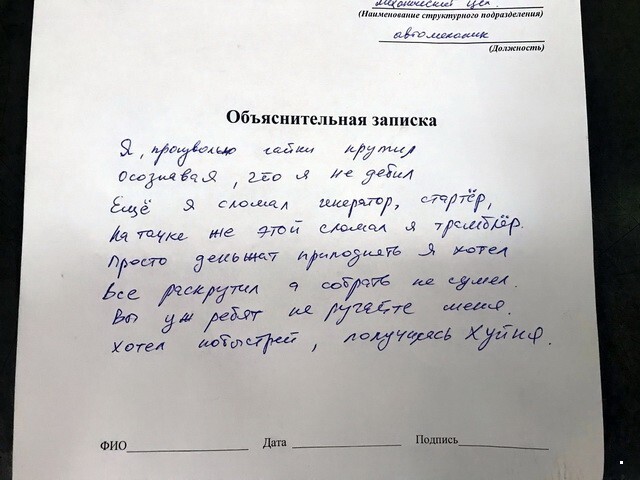 механический цех.
(Наименование структурного подразделения)
автомеханик
(Должность)
Объяснительная записка
Я, произвольно гайки крутил
осознавая, что я не дебил
Ещё я сломал генератор, стартёр,
На тачке же этой сломал я трамблёр.
Просто деньжат приподнять я хотел
Все раскрутил а собрать не сумел.
Вы уж ребят не ругайте меня.
Хотел побыстрей, получилась Хуйня.
ФИО Дата Подпись